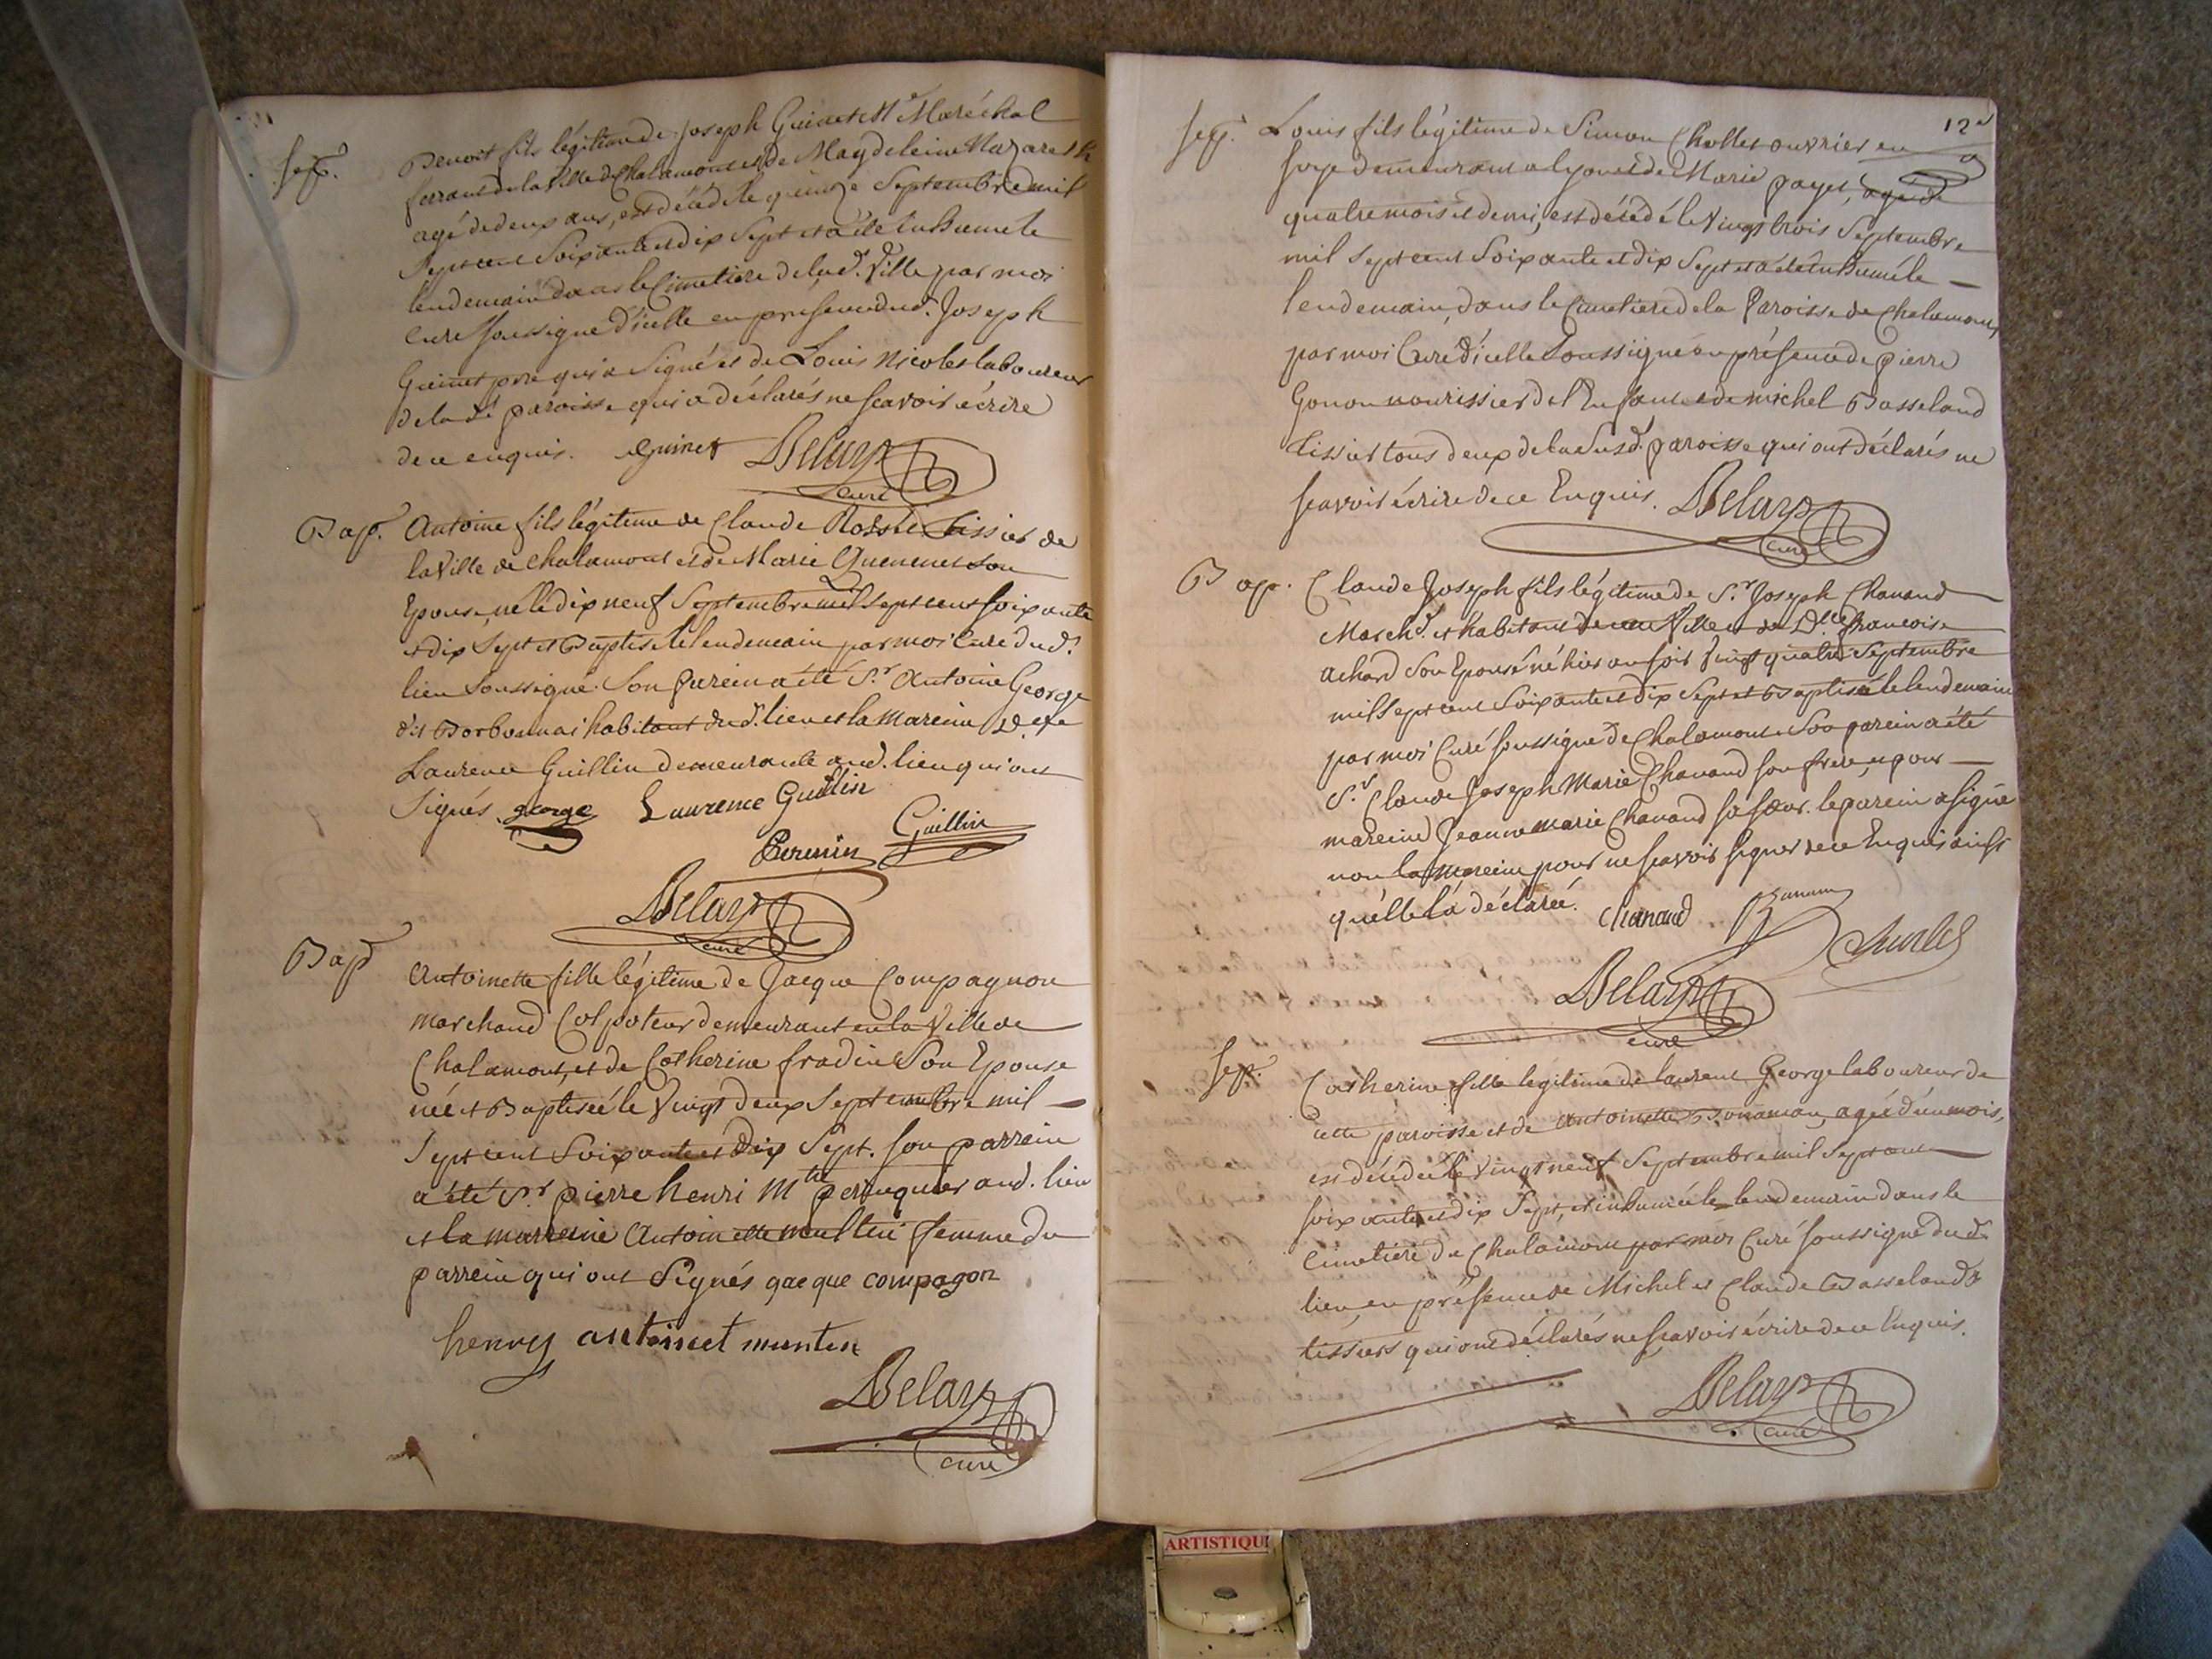 sep.
Benoit fils légitime de Joseph Guinet Me Maréchal
ferrant de la Ville de Chalamont et de Magdeleine Nazareth
agé de deux ans, est décédé le quinze Septembre mil
Sept cent Soixante et dix Sept et a été inhumé le
lendemain dans le Cimetiere de lad. Ville par moi
Curé soussigné d'icelle en presence dud. Joseph
Guinet pere qui a Signé et de Louis Nicolet laboureur
de lad. paroisse qui a déclarés ne scavoir écrire
de ce enquis. guinet Belay
curé
Bap. Antoine fils légitime de Claude Rosset tissier de
la Ville de Chalamont et de Marie Quenenet son
Epouse, né le dix neuf Septembre mil sept cent soixante
et dix Sept et Baptisé le lendemain par moi Curé dud.
lieu Soussigné. Son parein a été Sr. Antoine George
dit Borbonnai habitant dud. lieu et la Mareine D.elle
Laurence Guillin demeurante aud. lieu qui ont
Signés. george Laurence Guillin
Guillin
Belay
curé
Bap
Antoinette fille légitime de Jacque Compagnon
marchand Colpoteur demeurant en la Ville de
Chalamont, et de Catherine fradin Son Epouse
née et Baptisée le Vingt deux Septembre mil
Sept cent Soixante et Dix Sept. son parrein
a été Sr. pierre henri Mtre perruquier aud. lieu
et la marreine Antoinette multin femme du
parrein qui ont Signés gacque compagon
henry antoinet muntin
Belay
curé
12e
sep. Louis fils légitime de Simon Chollet ouvrier en
soye demeurant a lyon et de Marie payet, agé de
quatre mois et demi, est décédé le Vingt trois Septembre
mil Sept cent Soixante et dix Sept et a été inhumé le
lendemain, dans le Cimetiere de la Paroisse de Chalamont,
par moi Curé d'icelle Soussigné en présence de pierre
Gonon nourissier de l'Enfant et de michel Basseland
tissier tous deux de la susd. paroisse qui ont déclarés ne
scavoir écrire de ce Enquis. Belay
curé
Bap. Claude Joseph fils légitime de S.r Joseph Chanand
March.d et habitant de cette Ville et de D.lle francoise
achard Son Epouse né hier au soir Vingt quatre Septembre
mil Sept cent Soixante et dix Sept et Baptisé le lendemain
par moi Curé soussigné de Chalamont. Son parein a été
S.r Claude Joseph Marie Chanand son frere, et pour
mareine Jeanne marie Chanand sa sœur. le parein a signé
non la Mareine pour ne scavoir signer de ce Enquis ainsi
qu'elle l'a déclarée. Chanand
Belay
curé
sep. Catherine fille légitime de laurent George laboureur de
cette paroisse et de Antoinette Bonaman, agée d'un mois,
est décédée le Vingt neuf Septembre mil Sept cent
soixante et dix Sept, et inhumée le lendemain dans le
Cimetiere de Chalamont par moi Curé soussigné dud.
lieu, en présence de Michel et Claude Basseland
tissiers qui ont déclarés ne scavoir écrire de ce Enquis.
Belay
curé
ARTISTIQU